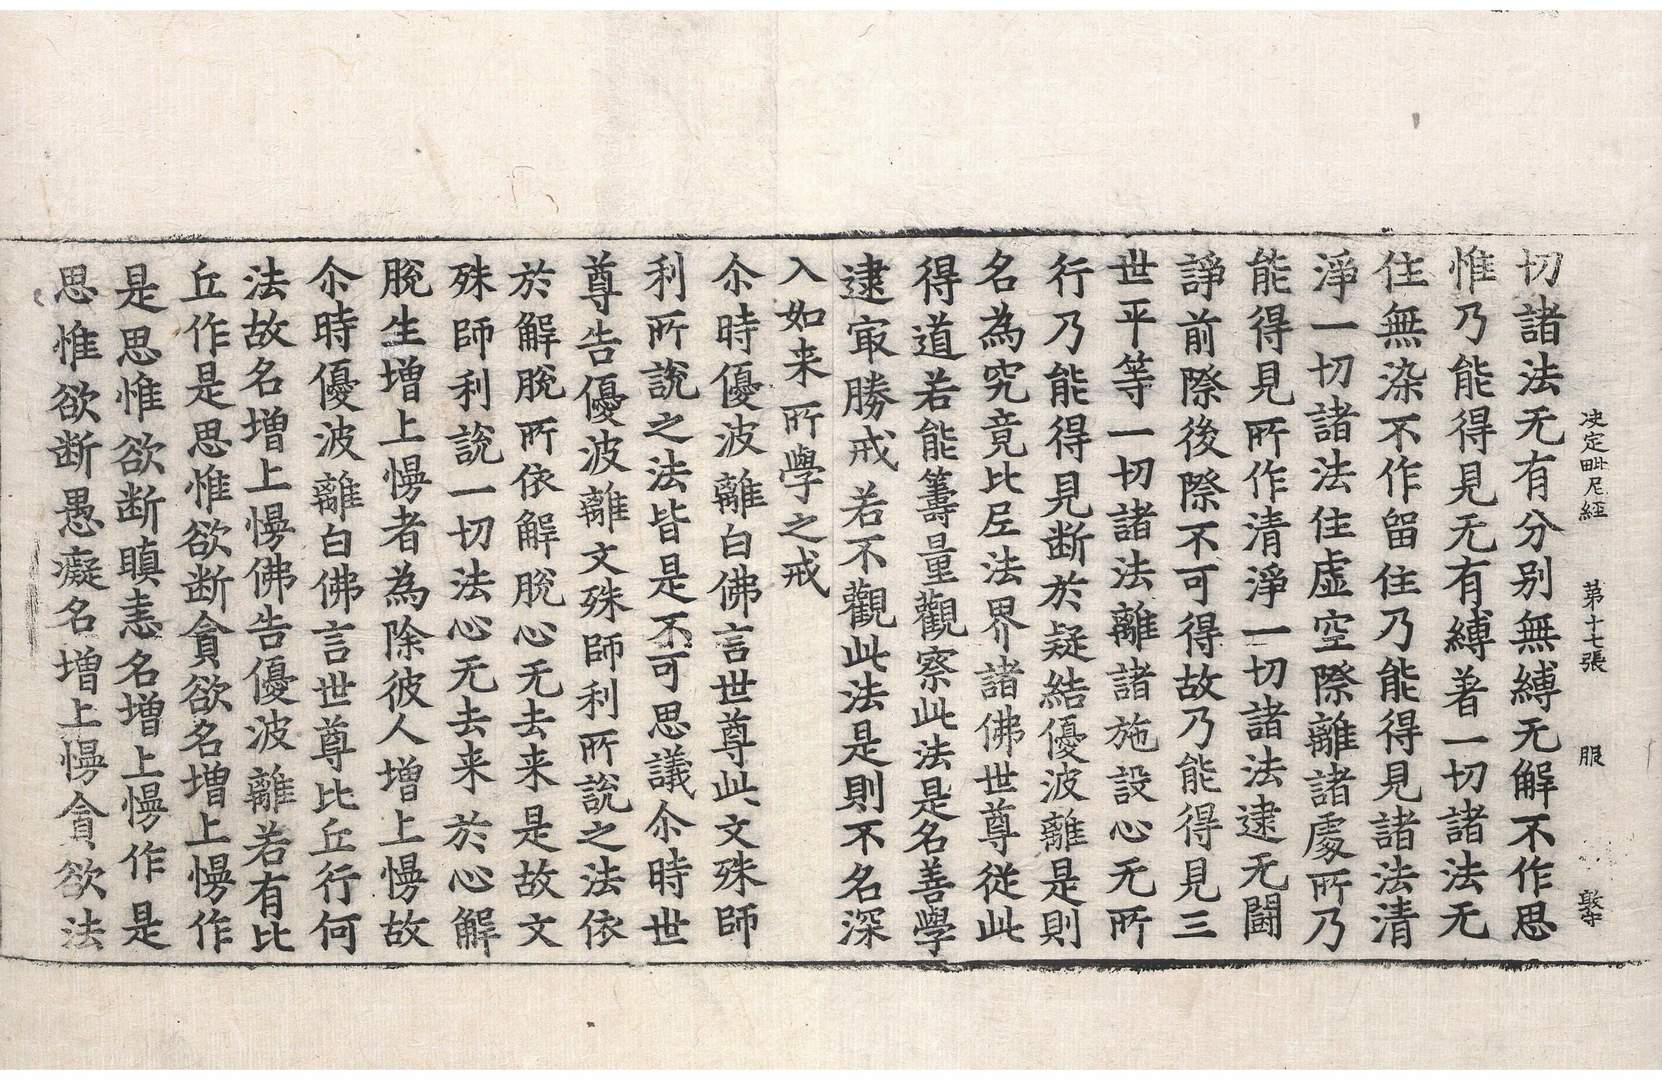 决定毗尼經 第十七張 服
切諸法无有分别無縛无解不作思
惟乃能得見无有縛著一切諸法无
住無染不作留住乃能得見諸法清
淨一切諸法住虛空際離諸處所乃
能得見所作清淨一切諸法逮无鬪
諍前際後際不可得故乃能得見三
世平等一切諸法離諸施設心无所
行乃能得見断於疑結優波離是則
名為究竟比𡰱法界諸佛世尊從此
得道若能籌量觀察此法是名善學
逮㝡勝戒若不觀此法是則不名深
入如来所學之戒
尒時優波離白佛言世尊此文殊師
利所說之法皆是不可思議尒時世
尊告優波離文殊師利所說之法依
於解脫所依解脫心无去来是故文
殊師利說一切法心无去来於心解
脫生增上慢者為除彼人增上慢故
尒時優波離白佛言世尊比丘行何
法故名增上慢佛告優波離若有比
丘作是思惟欲断貪欲名增上慢作
是思惟欲断瞋恚名增上慢作是
思惟欲断愚癡名增上慢貪欲法